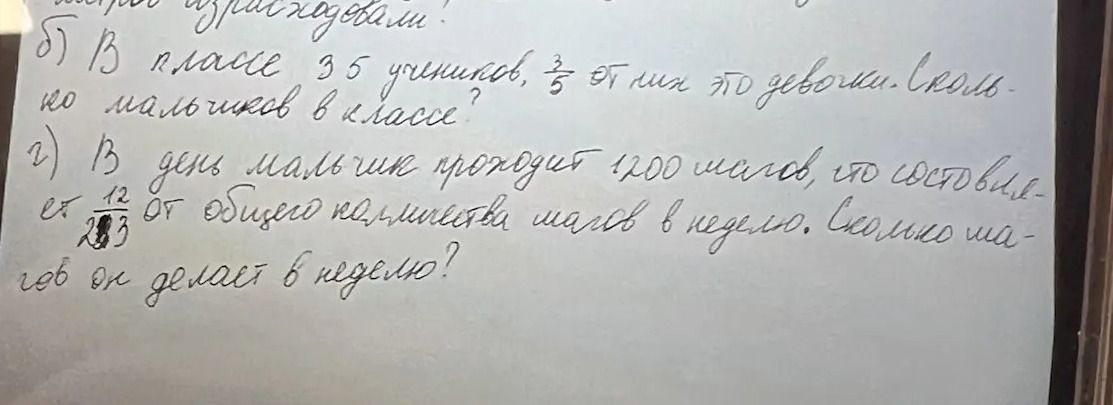 израсходовали?
б) В классе 35 учеников, 3/5 от них это девочки. Сколь-
ко мальчиков в классе?
г) В день мальчик проходит 1200 шагов, что составля-
ет 12/23 от общего количества шагов в неделю. Сколько ша-
гов он делает в неделю?